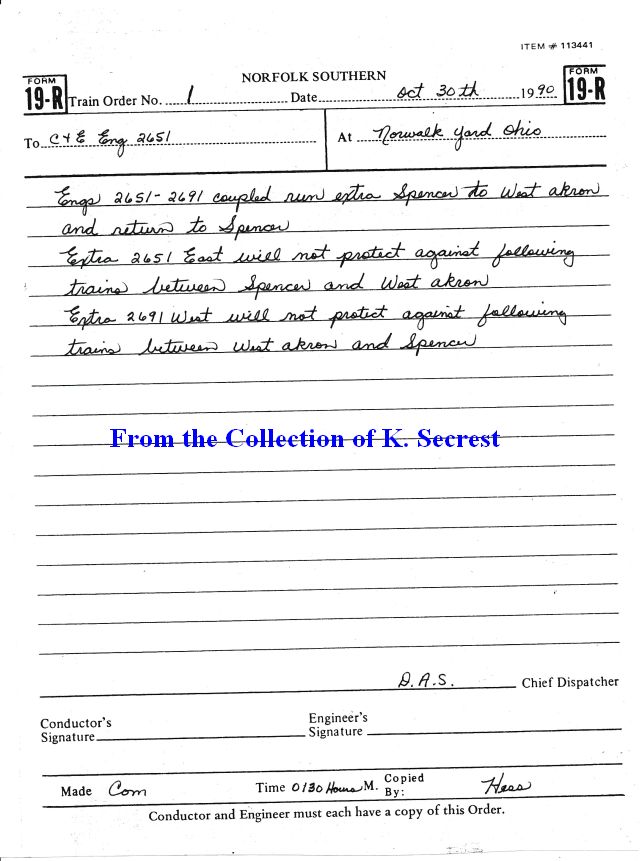 ITEM # 113441
FORM 19-R
NORFOLK SOUTHERN
FORM 19-R
Train Order No. 1 Date Oct 30th 1990
To C+E Eng 2651 At Norwalk Yard Ohio
Engs 2651-2691 coupled run extra Spencer to West akron
and return to Spencer
Extra 2651 East will not protect against following
trains between Spencer and West akron
Extra 2691 West will not protect against following
trains between West akron and Spencer
From the Collection of K. Secrest
D.A.S. Chief Dispatcher
Conductor's Signature
Engineer's Signature
Made Com Time 0130 Hours M. Copied By: Hess
Conductor and Engineer must each have a copy of this Order.